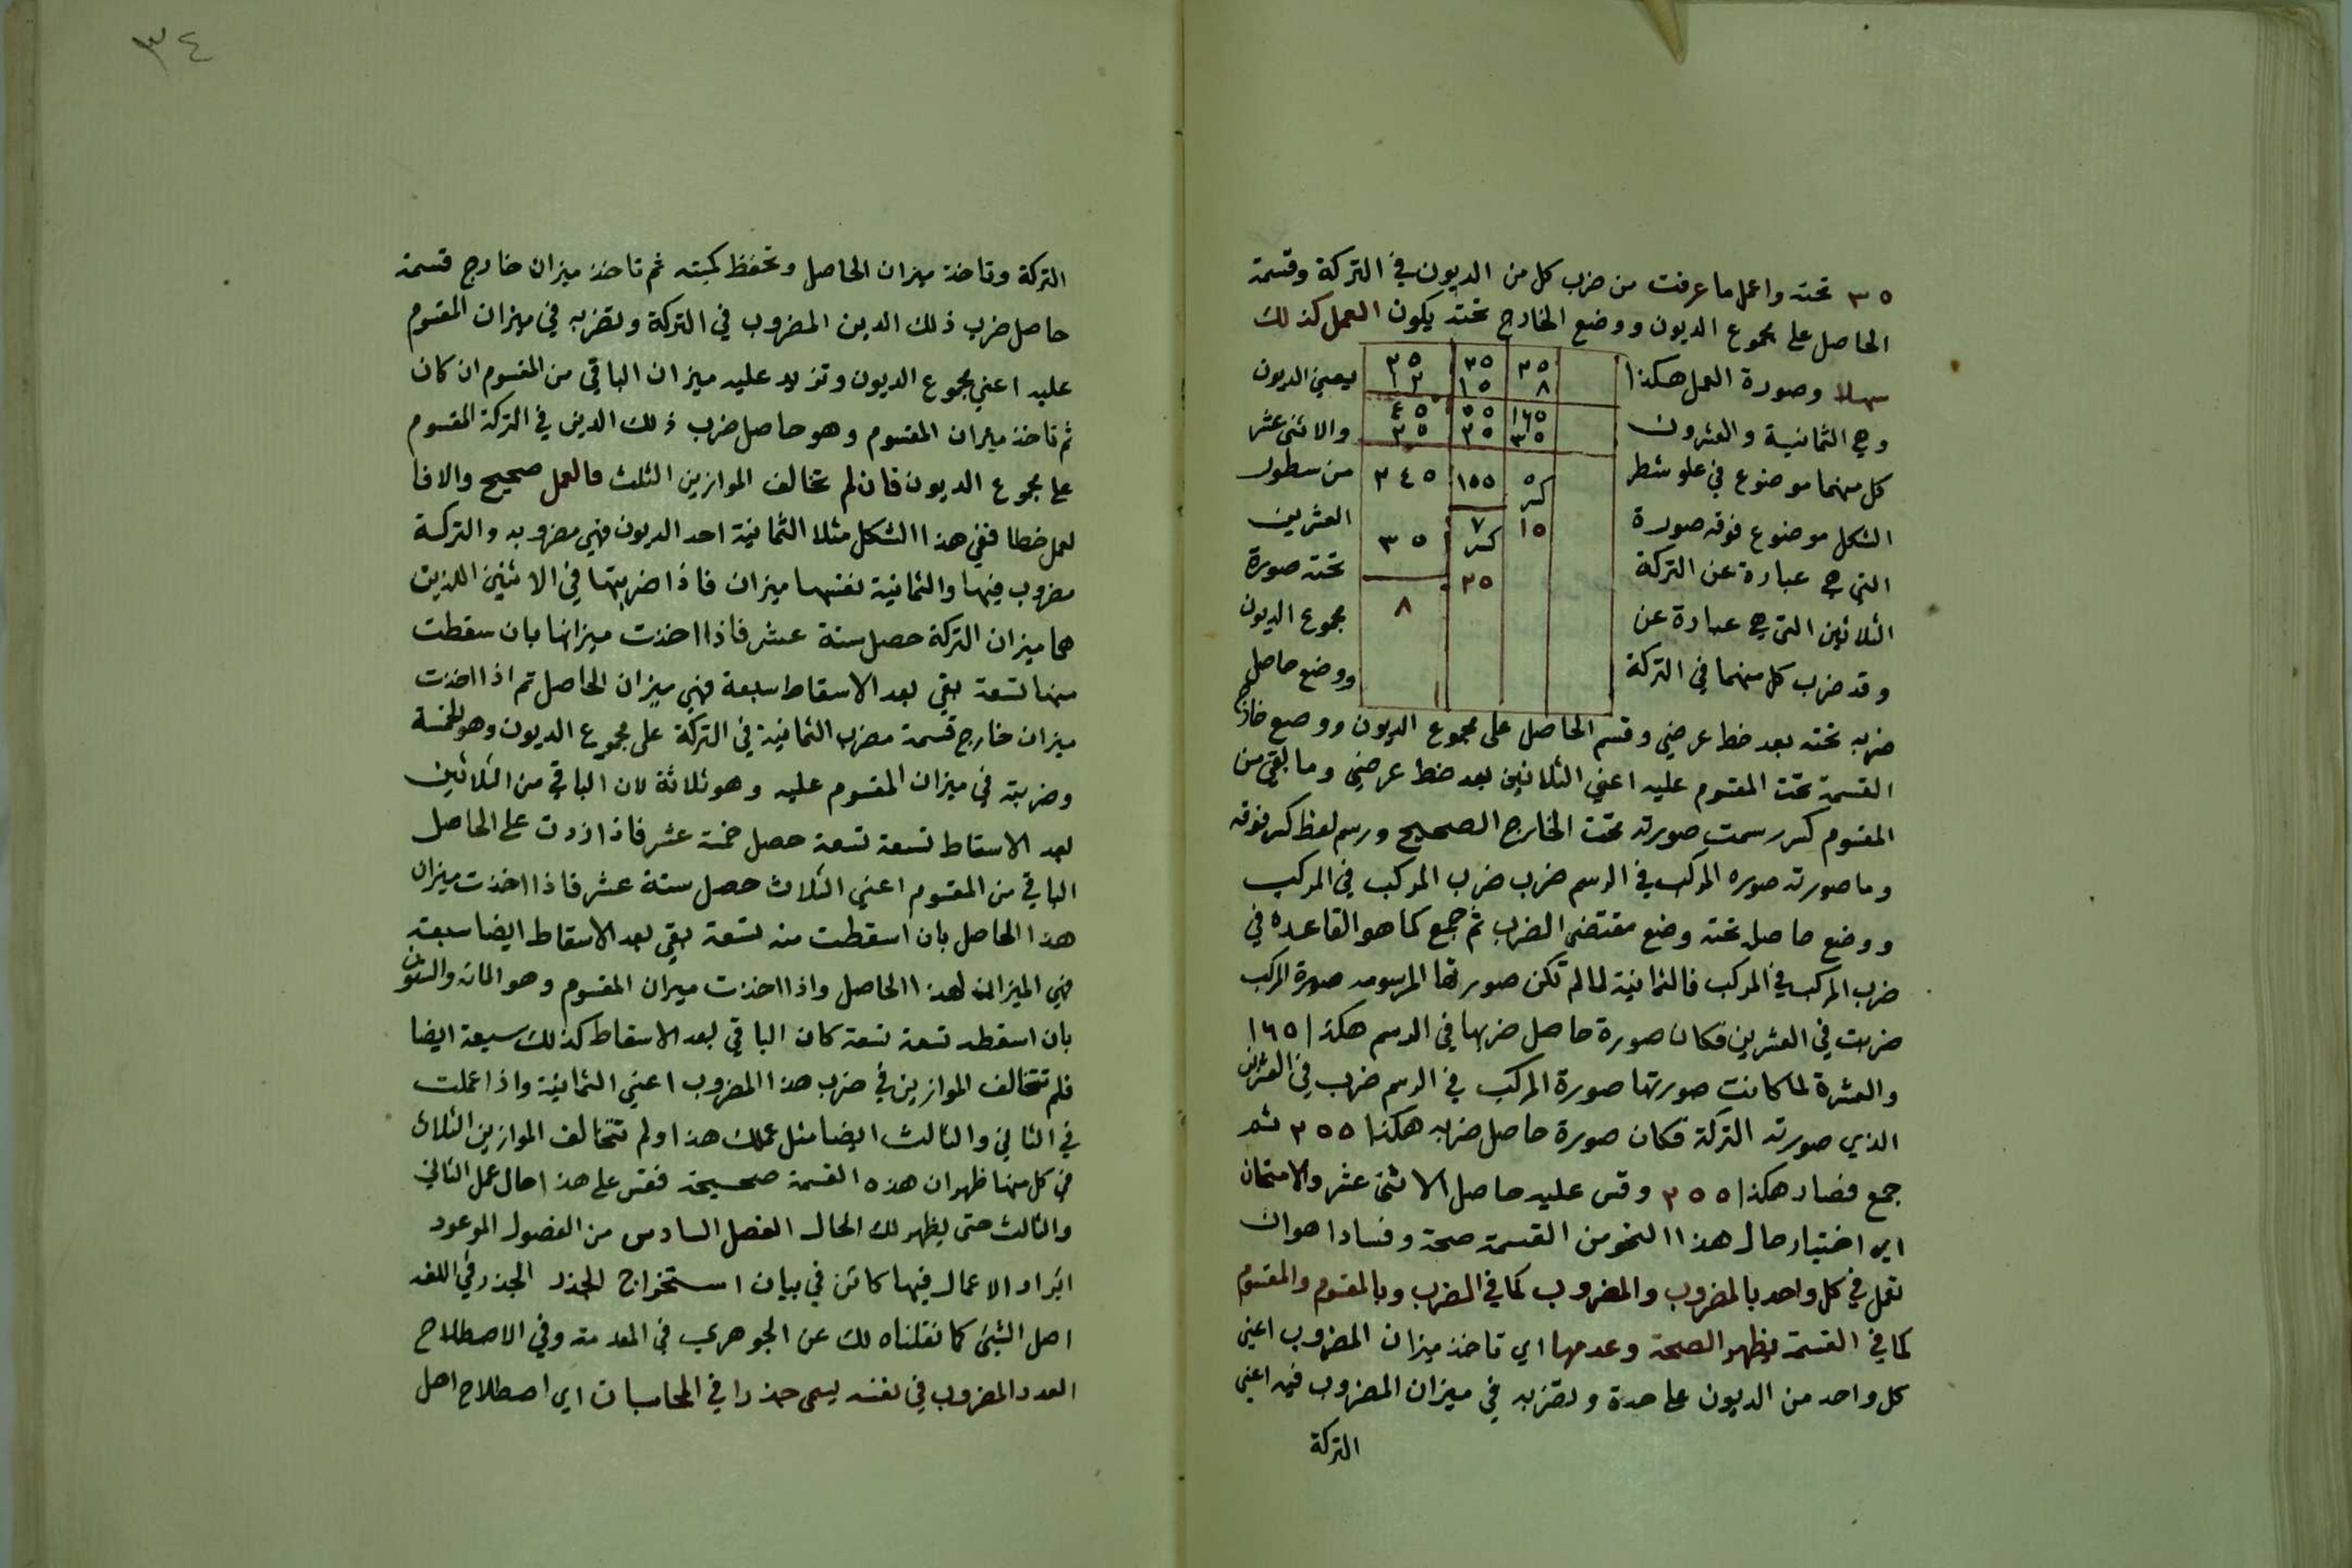 ٣٥ تحته واعمل ما عرفت من ضرب كل من الديون في التركة وقسمة
الحاصل على مجموع الديون ووضع الخارج تحته يكون العمل كذلك
سهلا وصورة العمل هكذا
وهي الثمانية والعشرون
كل منهما موضوع في علو شطر
الشكل موضوع فوقه صورة
التي هي عبارة عن التركة
الثلاثين التي هي عبارة عن
وقد ضرب كل منهما في التركة
٢٥ ٢٥ ٢٥
٨ ١٥ ١٢
١٦٥ ٥٥ ٤٥
٣٥ ٢٥ ٢٥
٥ ١٥٥ ٢٤٥
كسر ٧
١٥ كسر ٣٥
٢٥
٨
يعني الديون
والاثنى عشر
من سطور
العشرين
تحته صورة
مجموع الديون
ووضع حاصل
ضربه تحته بعد خط عرضي وقسم الحاصل على مجموع الديون ووضع خارج
القسمة تحت المقسوم عليه اعني الثلاثين بعد خط عرضي وما بقي من
المقسوم كسر رسمت صورته تحت الخارج الصحيح ورسم لفظ كسر فوقه
وما صورته صوره المركب في الرسم ضرب ضرب المركب في المركب
ووضع حاصله تحته وضع مقتضى الضرب ثم جمع كما هو القاعدة في
ضرب المركب في المركب فالثمانية لما لم تكن صورتها المرسومه صورة المركب
ضربت في العشرين فكان صورة حاصل ضربها في الرسم هكذا ١٦٥
والعشرة لما كانت صورتها صورة المركب في الرسم ضرب في العشرين
الذي صورته التركة فكان صورة حاصل ضربه هكذا ٢٥٥ ثم
جمع فصار هكذا ٢٥٥ وقس عليه حاصل الاثنى عشر والامتحان
اي اختبار حال هذا النحو من القسمة صحة وفسادا هو ان
تفعل في كل واحد بالمضروب والمضروب كما في الضرب وبالمقسوم والمقسوم
كما في القسمة يظهر الصحة وعدمها اي تاخذ ميزان المضروب اعني
كل واحد من الديون على حدة وتضربه في ميزان المضروب فيه اعني
التركة
٣٤
التركة وتاخذ ميزان الحاصل وتحفظ كميته ثم تاخذ ميزان خارج قسمة
حاصل ضرب ذلك الدين المضروب في التركة وتضربه في ميزان المقسوم
عليه اعني مجموع الديون وتزيد عليه ميزان الباقي من المقسوم ان كان
ثم تاخذ ميزان المقسوم وهو حاصل ضرب ذلك الدين في التركة المقسوم
على مجموع الديون فان لم تخالف الموازين الثلث فالعمل صحيح والا فا
لعمل خطا ففي هذا الشكل مثلا الثمانية احد الديون فهي مضروبه والتركة
مضروب فيها والثمانية نفسها ميزان فاذا ضربتها في الاثنين اللذين
هما ميزان التركة حصل ستة عشر فاذا اخذت ميزانها بان سقطت
منها تسعة بقي بعد الاسقاط سبعة فهي ميزان الحاصل ثم اذا اخذت
ميزان خارج قسمة مضرب الثمانية في التركة على مجموع الديون وهو الخمسة
وضربته في ميزان المقسوم عليه وهو ثلاثة لان الباقي من الثلاثين
بعد الاسقاط تسعة تسعة حصل خمسة عشر فاذا زدت على الحاصل
الباقي من المقسوم اعني الثلاث حصل ستة عشر فاذا اخذت ميزان
هذا الحاصل بان اسقطت منه تسعة بقي بعد الاسقاط ايضا سبعة
فهي الميزان لهذا الحاصل واذا اخذت ميزان المقسوم وهو المائة والستون
بان اسقطه تسعة تسعة كان الباقي بعد الاسقاط كذلك سبعة ايضا
فلم تتخالف الموازين في ضرب هذا المضروب اعني الثمانية واذا عملت
في الثاني والثالث ايضا مثل عملك هذا ولم تتخالف الموازين الثلاث
في كل منها ظهر ان هذه القسمة صحيحة فقس على هذا حال عمل الثاني
والثالث حتى يظهر لك الحال الفصل السادس من الفصول الموعود
ايراد الاعمال فيها كائن في بيان استخراج الجذر الجذر في اللغه
اصل الشيئ كما نقلناه لك عن الجوهري في المقدمة وفي الاصطلاح
العدد المضروب في نفسه يسمى جذرا في المحاسبات اي اصطلاح اهل